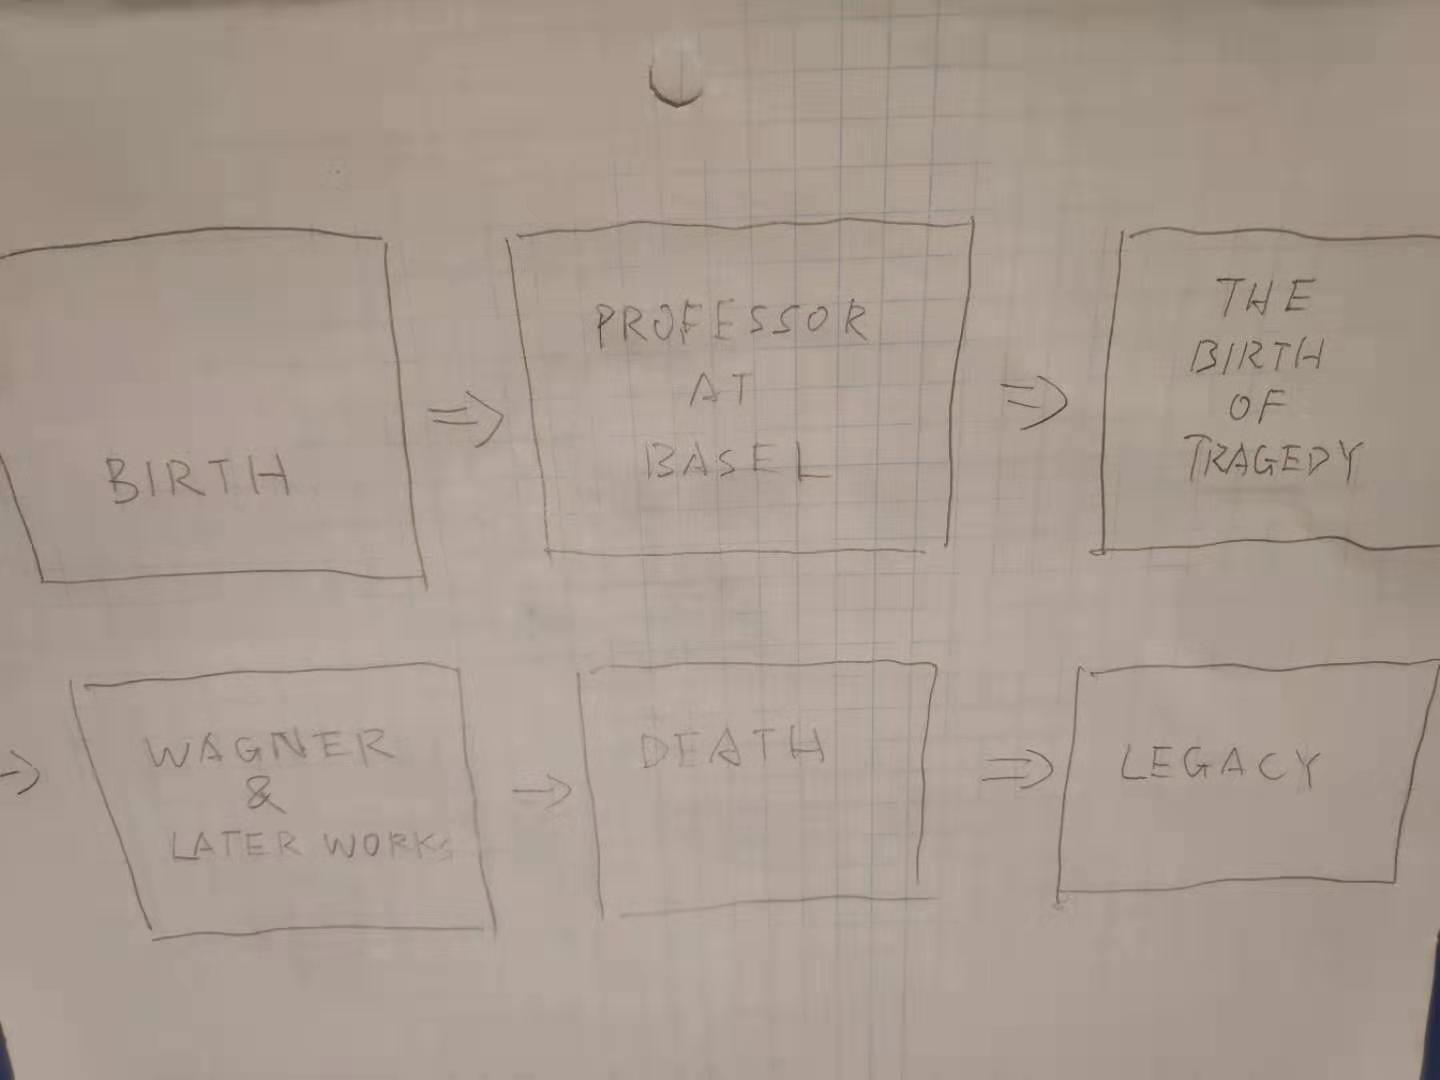 BIRTH
PROFESSOR
AT
BASEL
THE
BIRTH
OF
TRAGEDY
WAGNER
&
LATER WORKS
DEATH
LEGACY